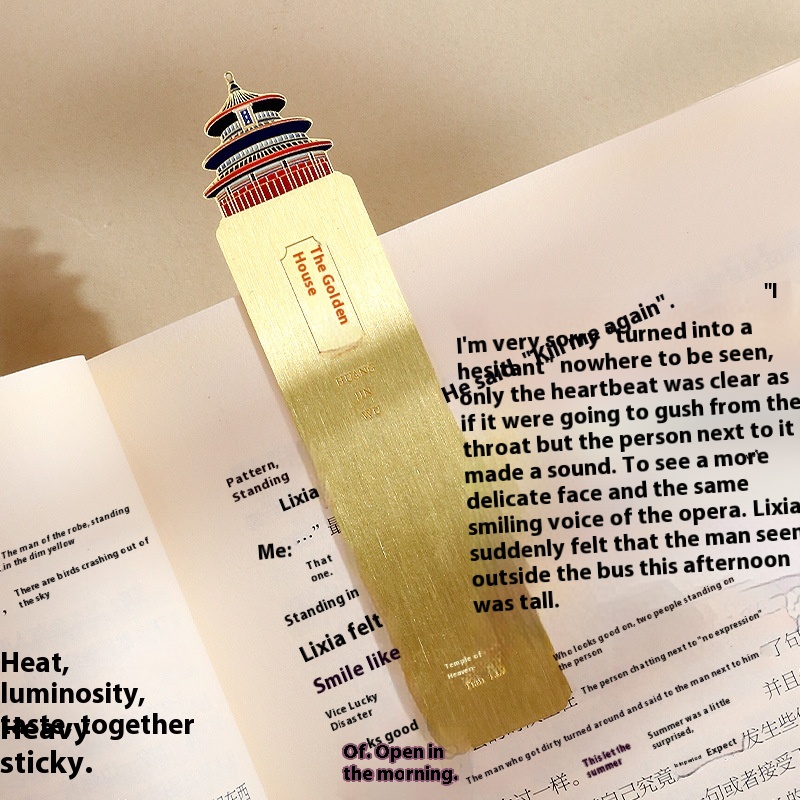 The Golden
House
JIN
"I
He said, "Kill my again".
I'm very some "turned into a
hesitant" nowhere to be seen,
only the heartbeat was clear as
if it were going to gush from the
throat but the person next to it
made a sound. To see a more
delicate face and the same
smiling voice of the opera. Lixia
suddenly felt that the man seen
outside the bus this afternoon
was tall.
Pattern,
Standing
Lixia
Me: …”
That
one.
Standing in
Lixia felt
Smile like
Vice Lucky
Disaster
good
Of. Open in
the morning.
The man of the robe, standing
in the dim yellow
There are birds crashing out of
the sky
Heat,
luminosity,
taste, together
Heavy
sticky.
Temple of
Heaven
Who looks good on, two people standing on
the person
The person chatting next to "no expression"
The man who got dirty turned around and said to the man next to him
This let the
summer
Summer was a little
surprised,
Expect
了句
并且
发生些
过一样。
自己究竟
句或者接受
在西